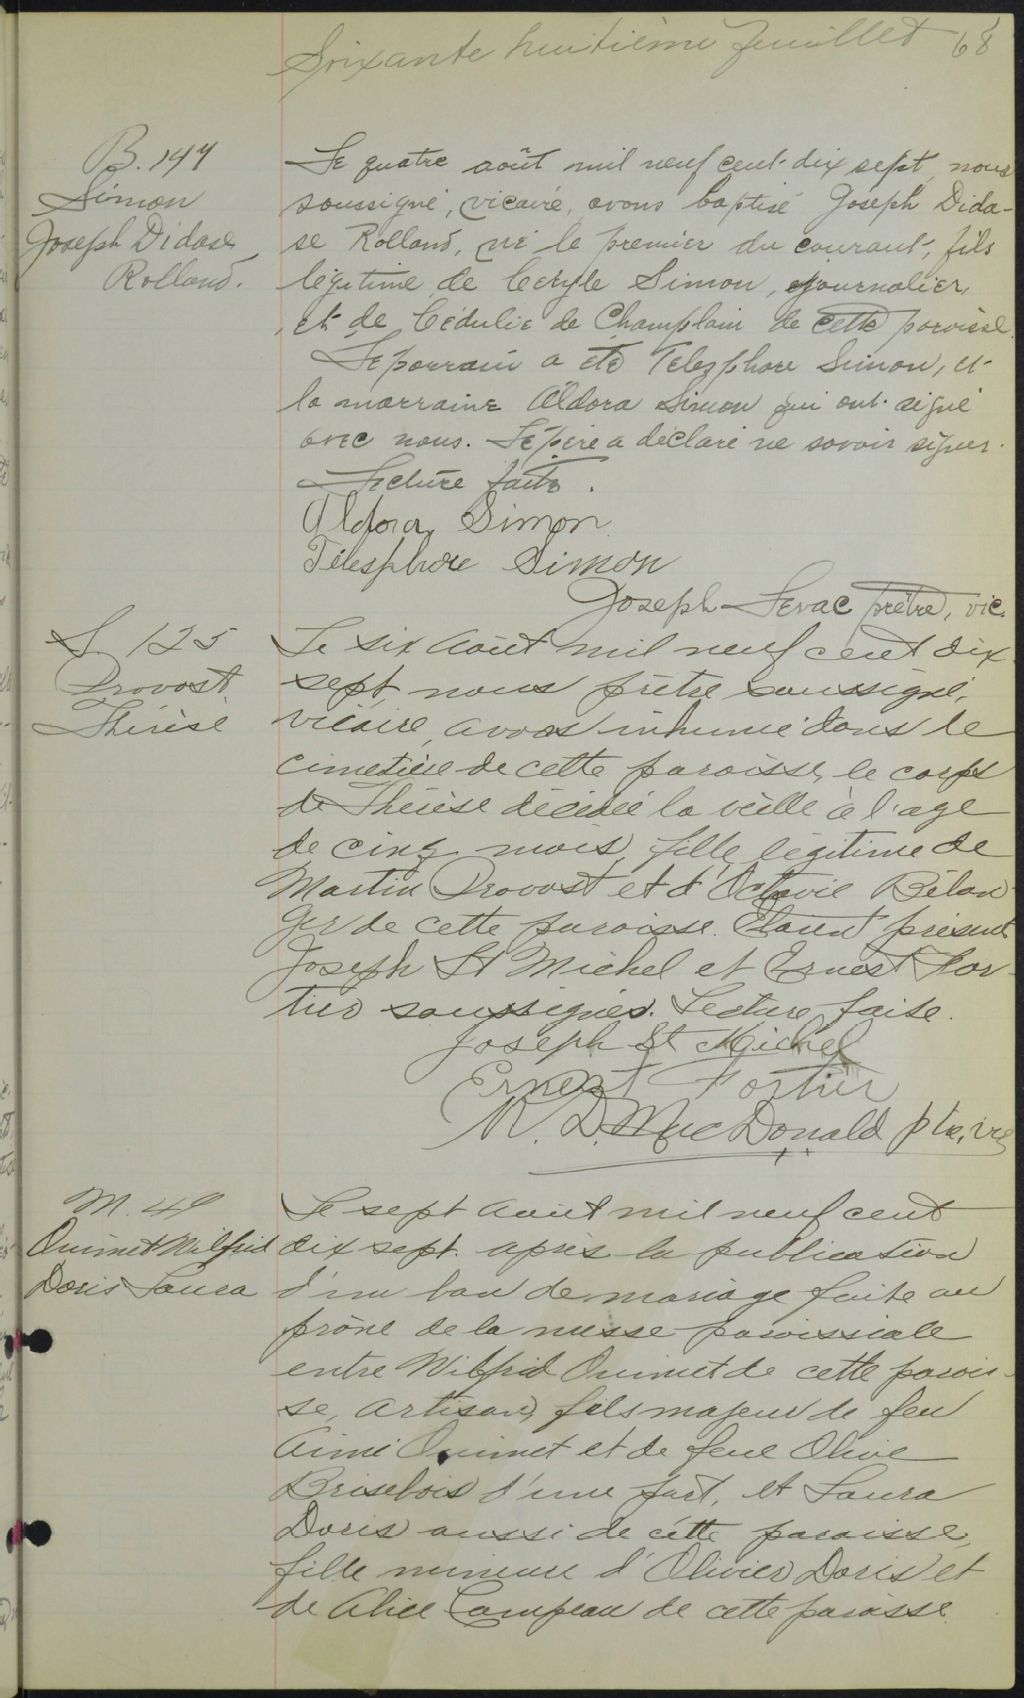 Soixante huitième feuillet 68
B. 147
Simon
Joseph Didase
Rolland.
Le quatre août mil neuf cent dix sept, nous
soussigné, vicaire, avons baptisé Joseph Dida-
se Rolland, né le premier du courant, fils
légitime de Ceryle Simon, journalier,
et de Cédulie de Champlain de cette paroisse.
Le parrain a été Telesphore Simon, et
la marraine Aldora Simon qui ont signé
avec nous. Le père a déclaré ne savoir signer.
Lecture faite.
Aldora Simon
Télesphore Simon
Joseph Levac prêtre, vic.
S. 125
Provost
Thérèse
Le six août mil neuf cent dix
sept, nous prêtre soussigné,
vicaire, avons inhumé dans le
cimetière de cette paroisse, le corps
de Thérèse décédée la veille à l'age
de cinq mois, fille légitime de
Martin Provost et d'Octavie Bélan-
ger de cette paroisse. Etaient présents
Joseph St Michel et Ernest For-
tier soussignés. Lecture faite.
Joseph St Michel
Ernest Fortier
R. D. MacDonald ptre, vic
M. 49
Ouimet Wilfrid
Doris Laura
Le sept août mil neuf cent
dix sept. après la publication
d'un ban de mariage faite au
prône de la messe paroissiale
entre Wilfrid Ouimet de cette parois-
se, artisan, fils majeur de feu
Aimé Ouimet et de feue Olive
Brisebois d'une part, et Laura
Doris aussi de cette paroisse,
fille mineure d'Olivier Doris et
de Alice Campeau de cette paroisse